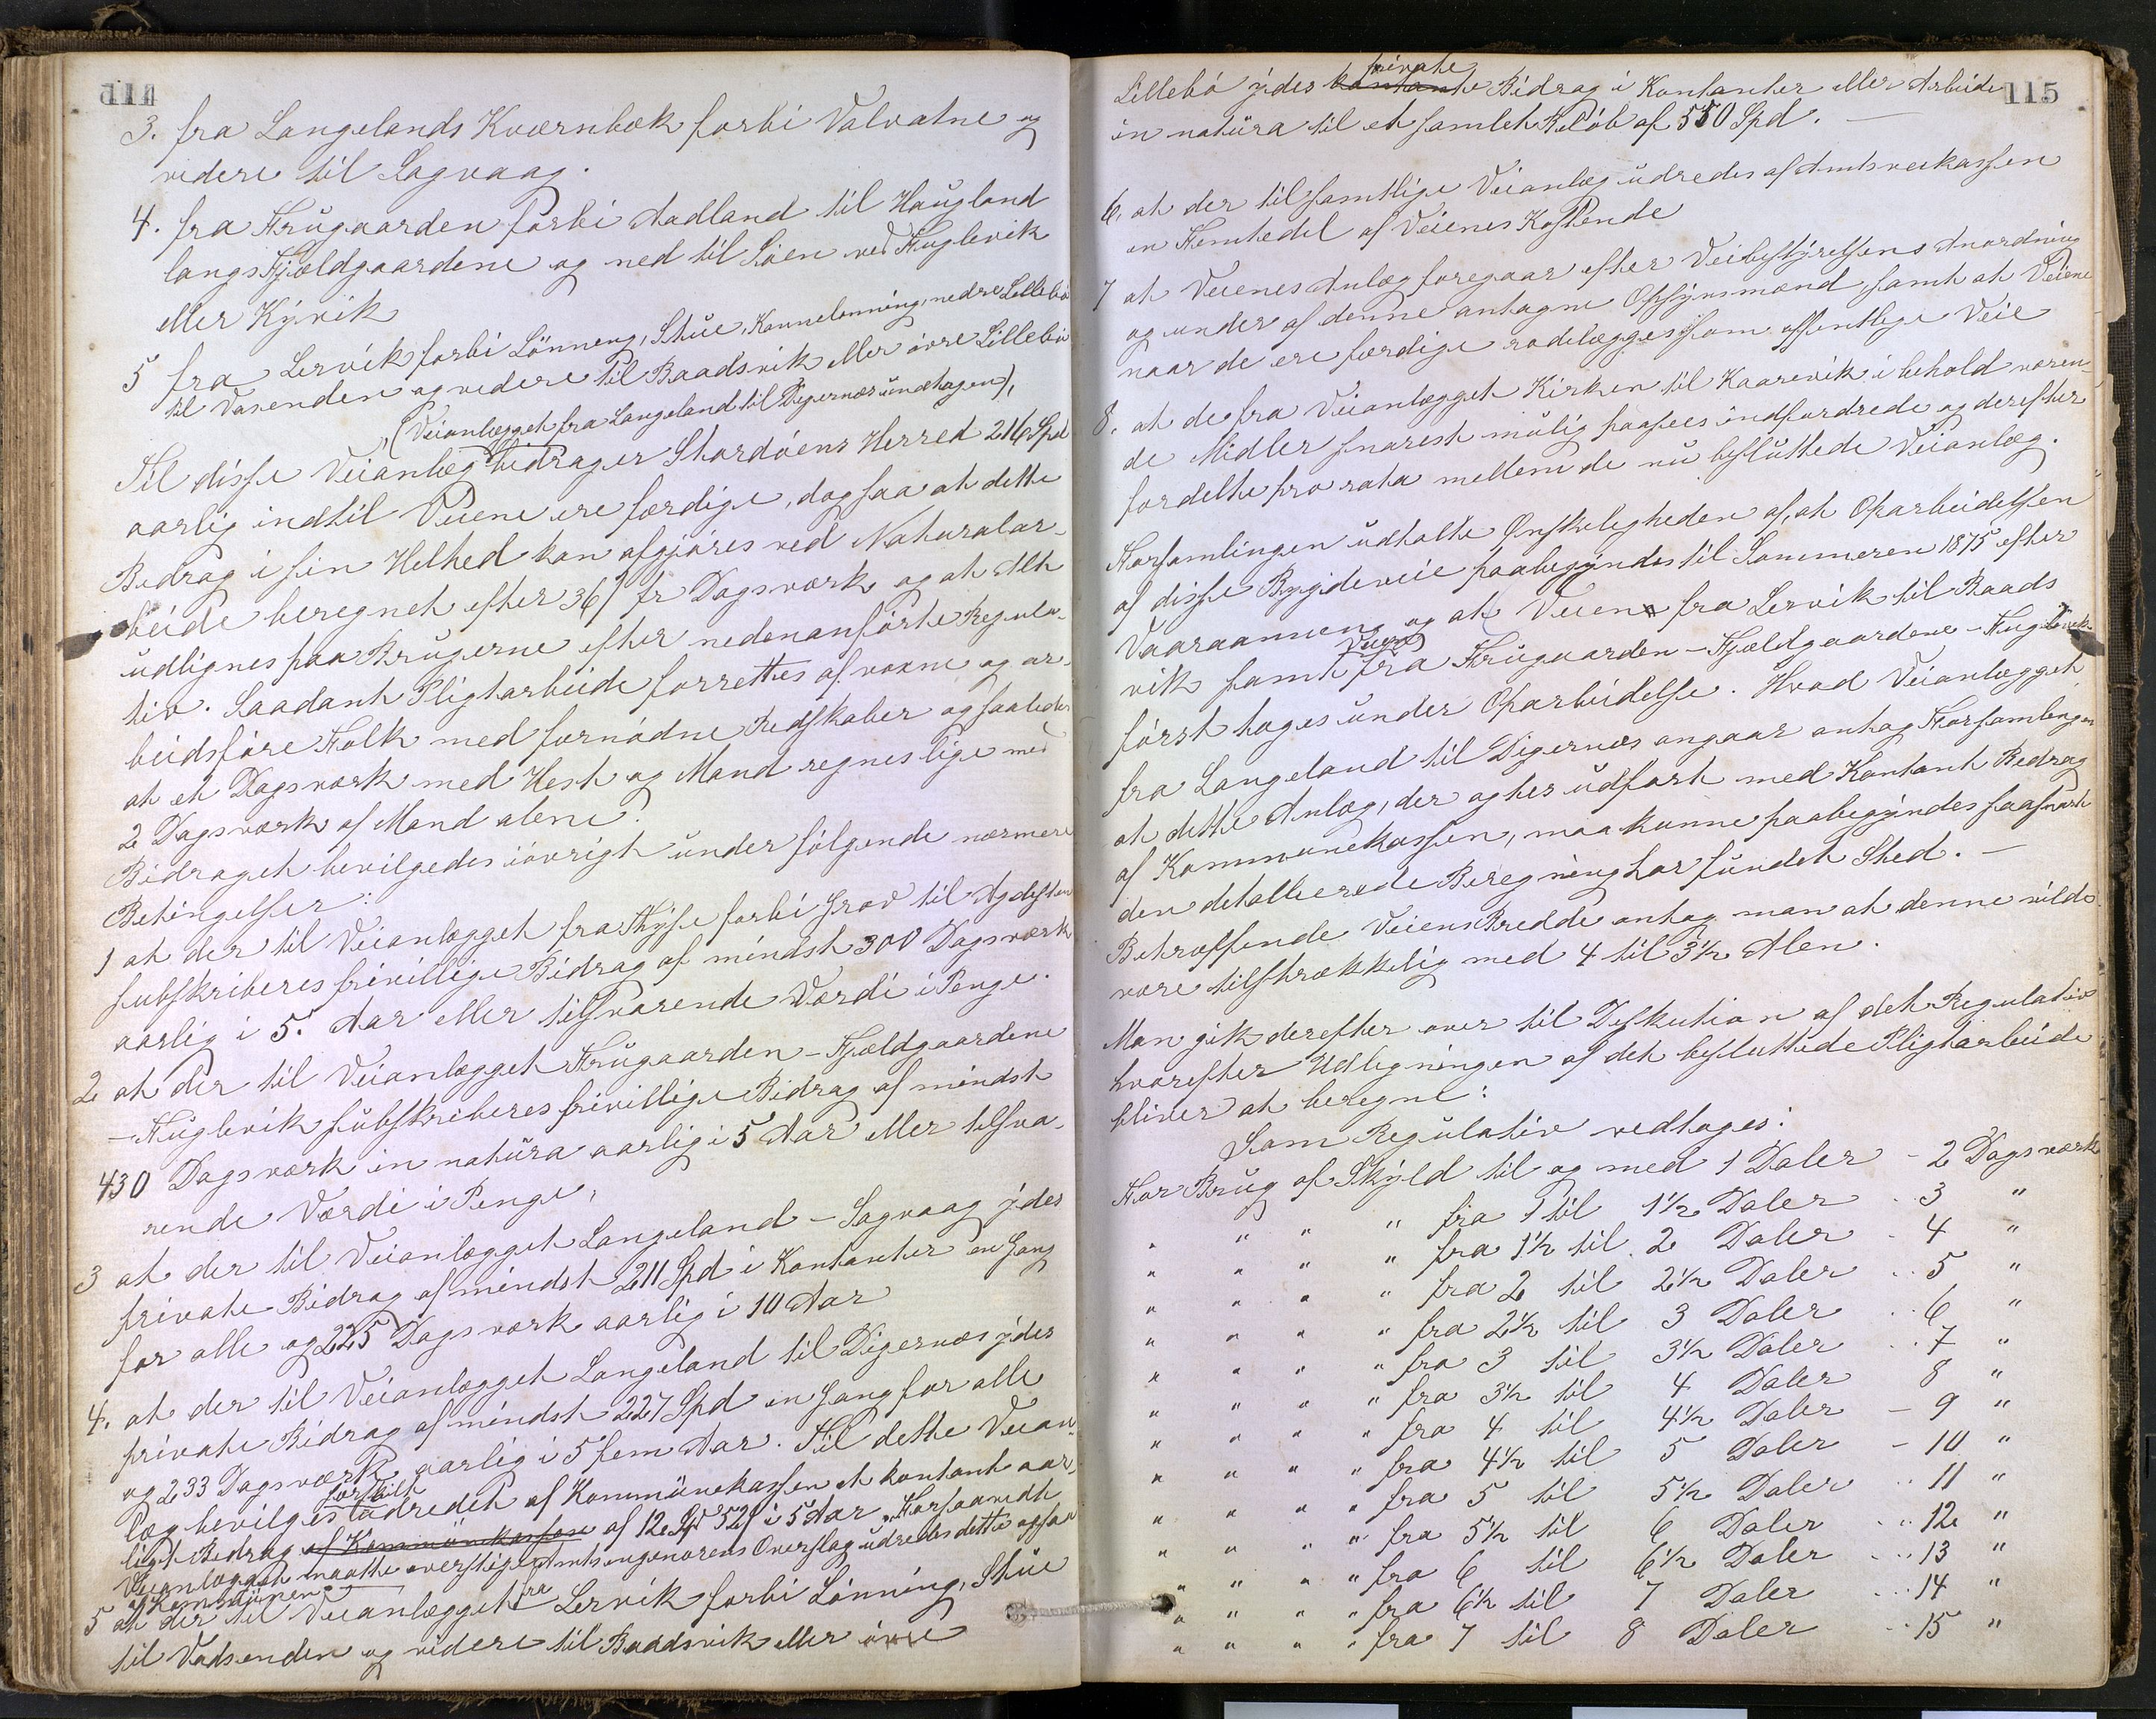 114
3. fra Langelands Kværnbæk forbi Valvatne og
videre til Sagvaag.
4. fra Frugaarden forbi Aadland til Haugland
langs Fjældgaardene og ned til Söen ved Fuglevik
eller Kyvik
5 fra Lervik forbi Lönning, Stue, Konnelonning, nedre Lillebö
til Vasenden og videre til Baadsvik eller övre Lillebö
(Veianlægget fra Langeland til Digernæs undtagen),
Til disse Veianlæg bidrager Stordöens Herred 216 Spd
aarlig indtil Veiene ere færdige, dog saa at dette
Bidrag i sin Helhed kan afgjöres ved Naturalar-
beide beregnet efter 36 s pr Dagsværk og at Alt
udlignes paa Brugerne efter nedenanförte Regula-
tiv. Saadant Pligtarbeide forrettes af voxne og ar-
beidsföre Folk med fornödne Redskaber og saaledes
at et Dagsværk med Hest og Mand regnes lige med
2 Dagsværk af Mand alene.
Bidraget bevilgedes iövrigt under fölgende nærmere
Betingelser:
1 at der til Veianlægget fra Tyse forbi Grov til Agdesten
subskriberes frivillige Bidrag af mindst 300 Dagsværk
aarlig i 5. Aar eller tilsvarende Værdi i Penge.
2 at der til Veianlægget Frugaarden - Fjældgaardene
- Fuglevik subskriberes frivillige Bidrag af mindst
430 Dagsværk in natura aarlig i 5 Aar eller tilsva-
rende Værdi i Penge,
3 at der til Veianlægget Langeland - Sagvaag ydes
private Bidrag af mindst 211 Spd i Kontanter en Gang
for alle og 225 Dagsværk aarlig i 10 Aar
4. at der til Veianlægget Langeland til Digernæs ydes
private Bidrag af mindst 227 Spd en Gang for alle
og 233 Dagsværk aarlig i 5 fem Aar. Til dette Veian-
læg bevilges udredet af Kommunekassen et kontant aar-
ligt Bidrag af Kommunekassen af 12 Spd 52 s i 5 Aar. Forsaavidt
Veianlægget maatte overstige Amtsingeniörens Overslag udredes dette ogsaa
af Kommunen
5 at der til Veianlægget fra Lervik forbi Lönning, Stue
til Vadsenden og videre til Baadsvik eller övre
115
Lillebö ydes kontante private Bidrag i Kontanter eller Arbeide
in natura til et samlet Belöb af 550 Spd. —
6, at der til samtlige Veianlæg udredes af Amtsveikassen
en Femtedel af Veienes Kostende
7 at Veienes Anlæg foregaar efter Veibestyrelsens Anordning
og under af denne antagne Opsynsmænd samt at Veiene
naar de ere færdige rodelægges som offentlige Veie
8. at de fra Veianlægget Kirken til Kaarevik i behold væren-
de Midler snarest mulig paasees indfordrede og derefter
fordelte pro rata mellem de nu besluttede Veianlæg.
Forsamlingen udtalte Önskeligheden af, at Oparbeidelsen
af disse Bygdeveie paabegyndes til Sommeren 1875 efter
Vaaraannen og at Veien fra Lervik til Baads
vik samt Veien fra Frugaarden - Fjældgaardene - Fuglevik
först tages under Oparbeidelse. Hvad Veianlægget
fra Langeland til Digernæs angaar antog Forsamlingen
at dette Anlæg, der agtes udfört med Kontant Bidrag
af Kommunekassen, maa kunne paabegyndes saasnart
den detallierede Beregning har fundet Sted. —
Betræffende Veiens Bredde antog man at denne vilde
være tilstrækkelig med 4 til 3½ Alen.
Man gik derefter over til Diskution af det Regulativ
hvorefter Udligningen af det besluttede Pligtarbeide
bliver at beregne:
Som Regulativ vedtoges:
For Brug af Skyld til og med 1 Daler - 2 Dagsværk
" " " " fra 1 til 1½ Daler .. 3 "
" " " " fra 1½ til 2 Daler .. 4 "
" " " " fra 2 til 2½ Daler .. 5 "
" " " " fra 2½ til 3 Daler .. 6 "
" " " " fra 3 til 3½ Daler .. 7 "
" " " " fra 3½ til 4 Daler 8 "
" " " " fra 4 til 4½ Daler - 9 "
" " " " fra 4½ til 5 Daler - 10 "
" " " " fra 5 til 5½ Daler .. 11 "
" " " " fra 5½ til 6 Daler .. 12 "
" " " " fra 6 til 6½ Daler .. 13 "
" " " " fra 6½ til 7 Daler .. 14 "
" " " " fra 7 til 8 Daler .. 15 "